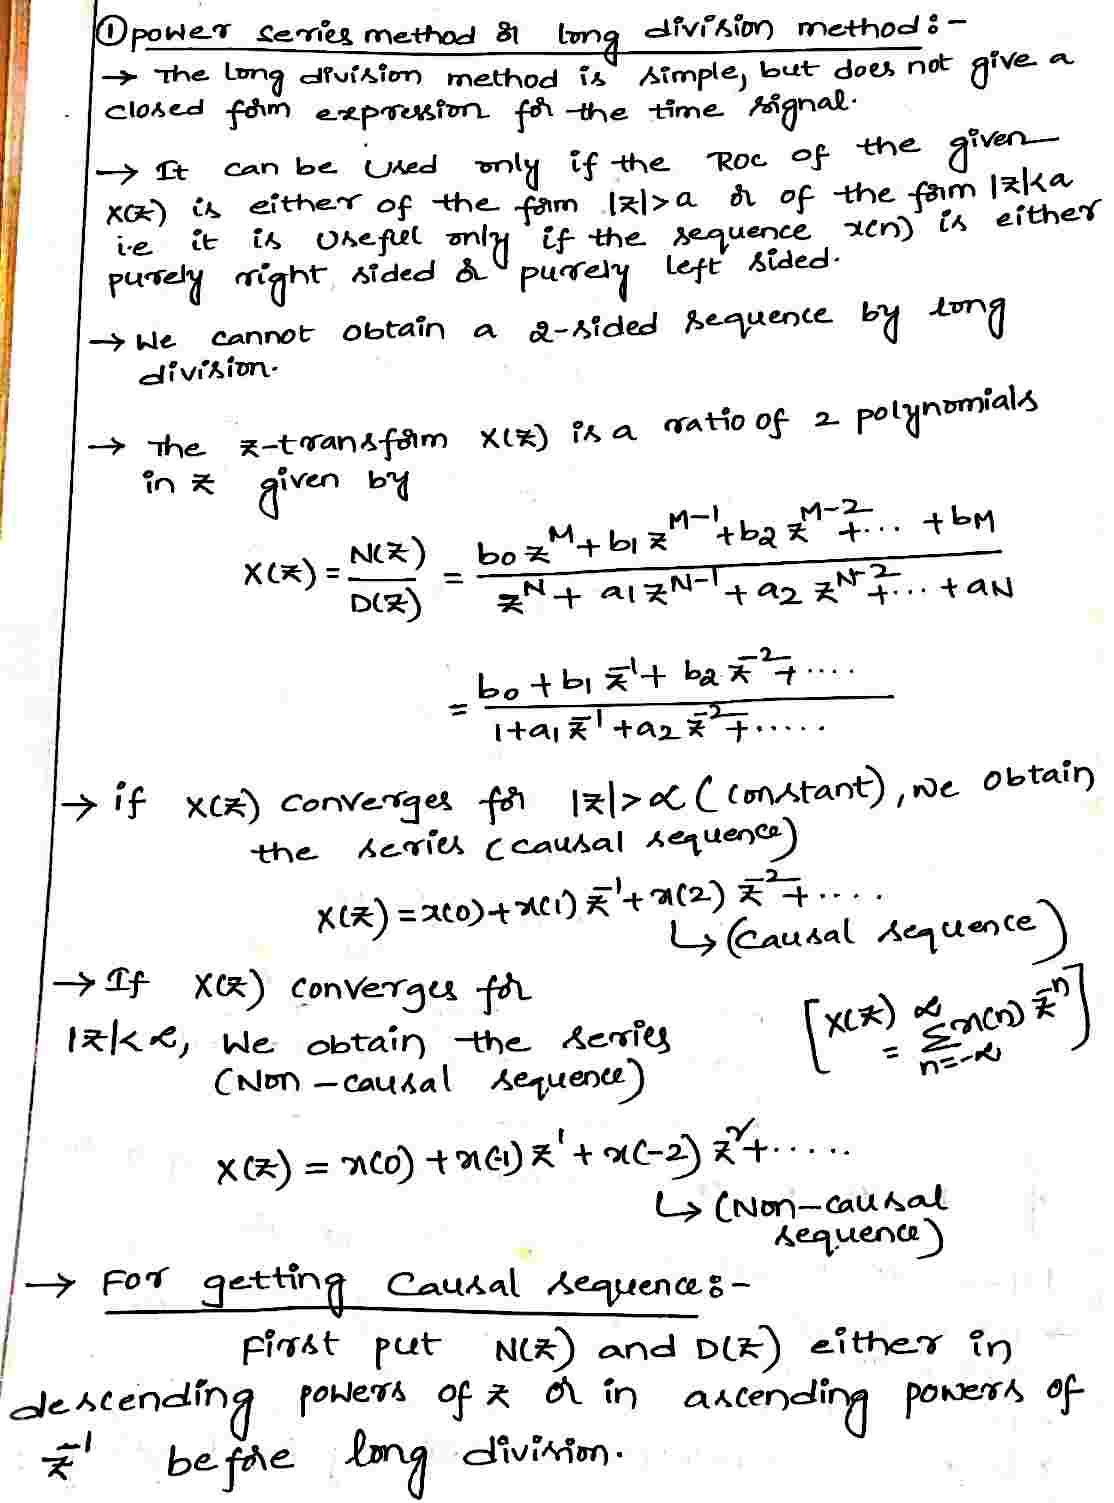 ① power series method or long division method:-
→ The long division method is simple, but does not give a
closed form expression for the time signal.
→ It can be used only if the ROC of the given
X(z) is either of the form |z|>a or of the form |z|<a
i.e it is useful only if the sequence x(n) is either
purely right sided or purely left sided.
→ We cannot obtain a 2-sided sequence by long
division.
→ The z-transform X(z) is a ratio of 2 polynomials
in z given by
X(z) = N(z)/D(z) = (b0 z^M + b1 z^(M-1) + b2 z^(M-2) + ... + bM) / (z^N + a1 z^(N-1) + a2 z^(N-2) + ... + aN)
= (b0 + b1 z^-1 + b2 z^-2 + ....) / (1 + a1 z^-1 + a2 z^-2 + .....)
→ if X(z) converges for |z|>α (constant), we obtain
the series (causal sequence)
X(z) = x(0) + x(1) z^-1 + x(2) z^-2 + ....
↳ (causal sequence)
→ If X(z) converges for
|z|<α, We obtain the series
(Non-causal sequence)
[X(z) = ∑_{n=-∞}^{∞} x(n) z^-n]
X(z) = x(0) + x(-1) z^1 + x(-2) z^2 + .....
↳ (Non-causal
sequence)
→ For getting causal sequence:-
First put N(z) and D(z) either in
descending powers of z or in ascending powers of
z^-1 before long division.